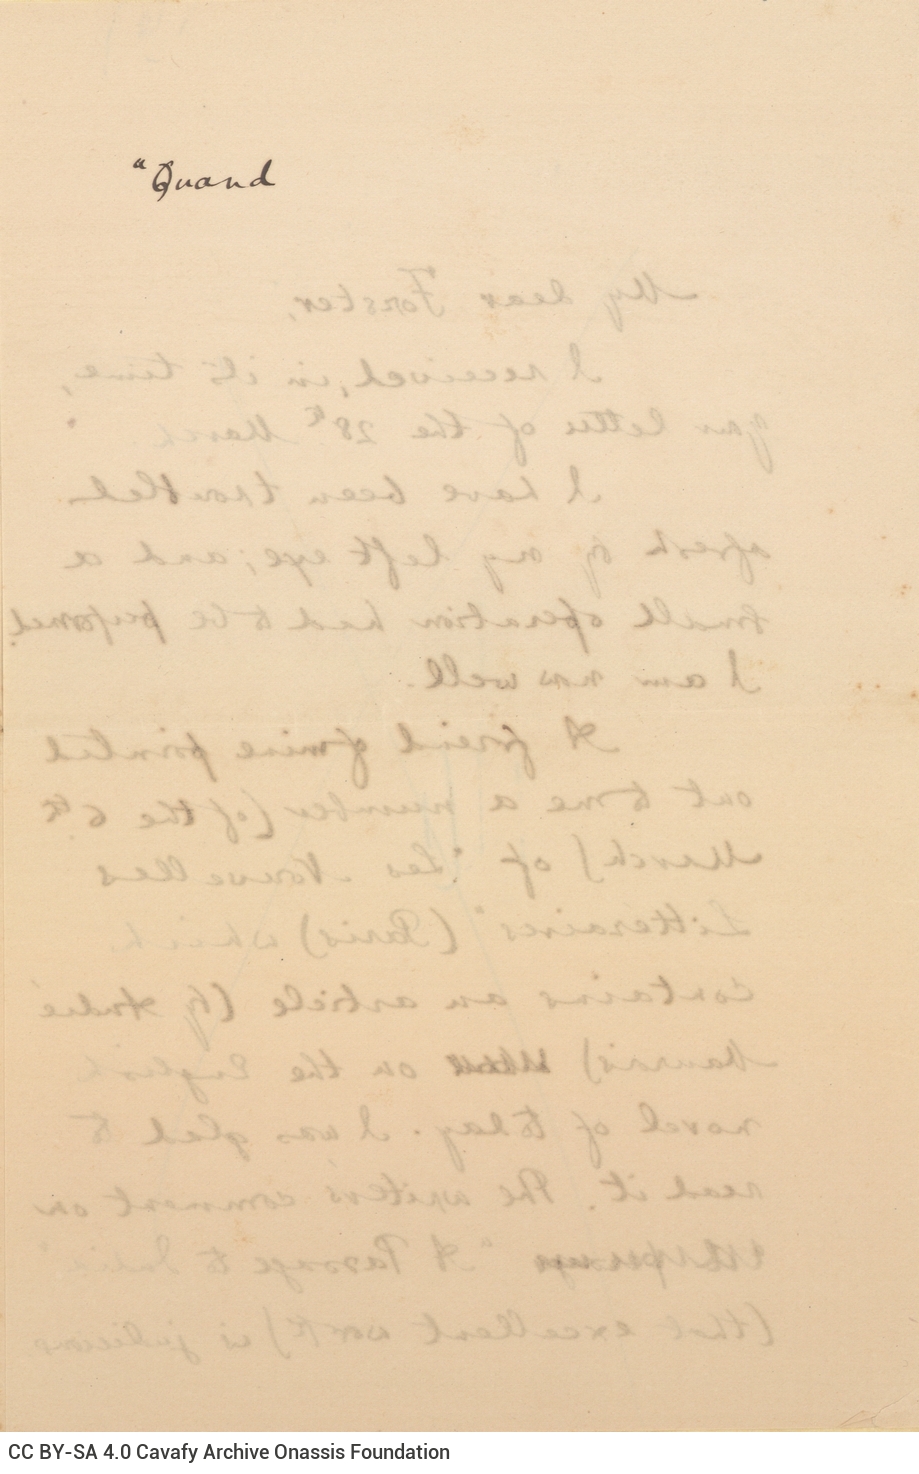 "Quand
My dear Forster,
I received, in its time,
your letter of the 28th March.
I have been troubled
afresh by my left eye; and a
small operation had to be performed.
I am now well.
A friend of mine pointed
out to me a number (of the 6th
March) of "Les Nouvelles
Litteraires" (Paris) which
contains an article (by André
Maurois) on the English
novel of today. I was glad to
read it. The writer's comment on
"A Passage to India"
(that excellent work) is judicious
CC BY-SA 4.0 Cavafy Archive Onassis Foundation